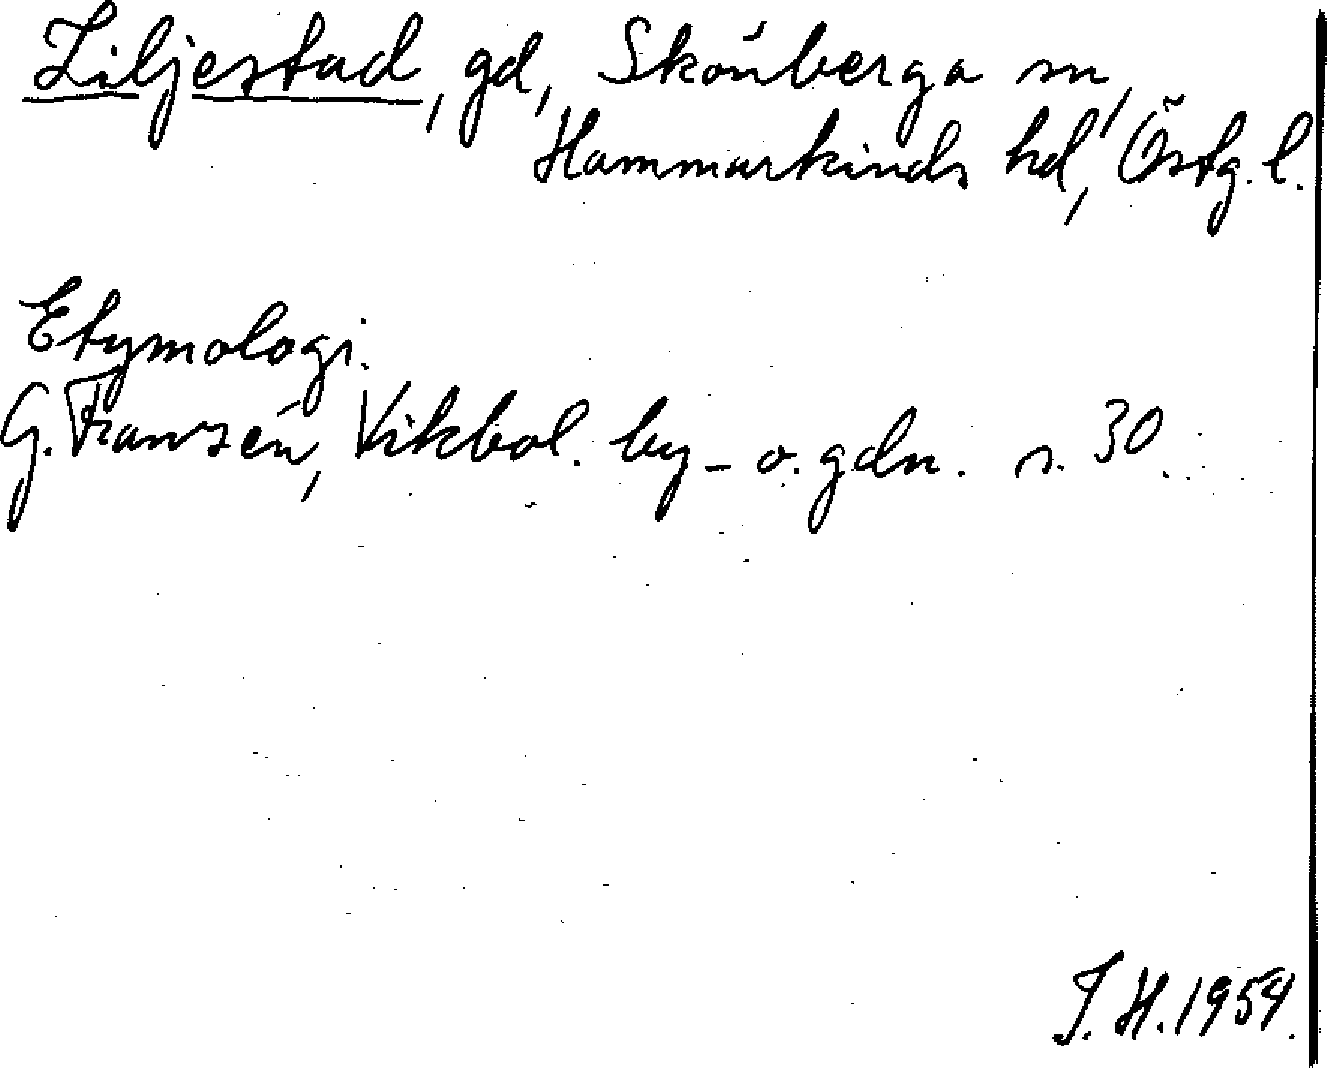 Liljestad, gd, Skönberga sn,
Hammarkinds hd, Östg. l.
Etymologi.
G. Franzén, Vikbol. by- o. gdn. s. 30.
J. H. 1959.